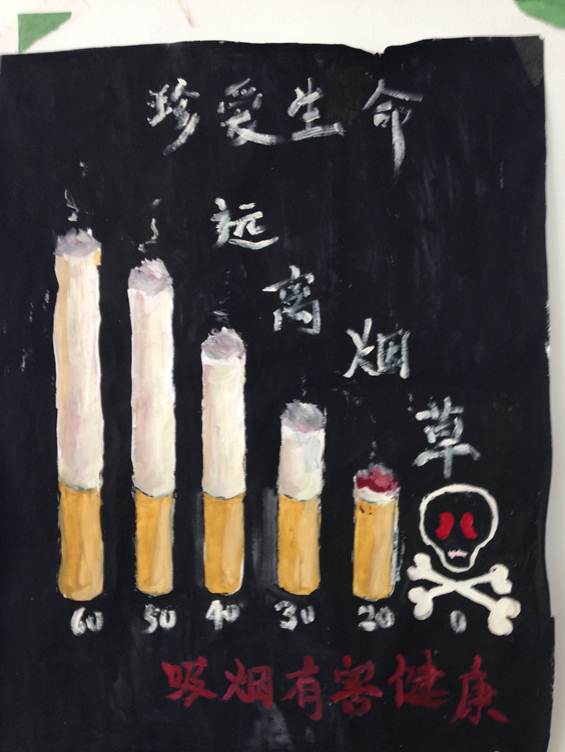 珍爱生命
远离烟草
60 50 40 30 20 0
吸烟有害健康